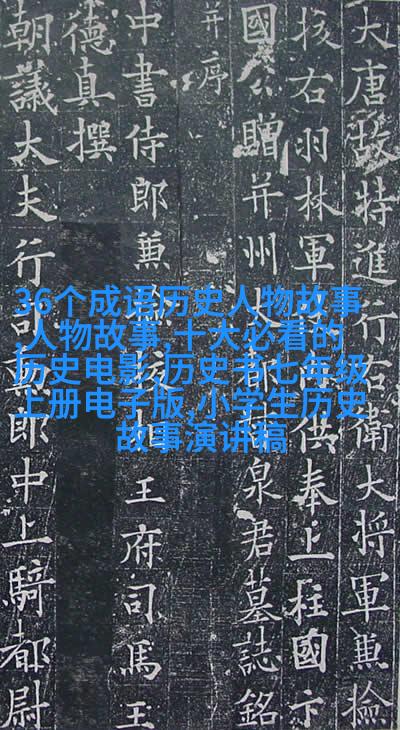 大唐故特進行右衛大將軍兼撿
挍右羽林軍供奉上柱國卞
國公贈并州泉君墓誌銘
并序
中書侍郎兼王府司馬王
德真撰
朝議大夫行司郎中上騎都尉
36个成语历史人物故事
,人物故事,十大必看的
历史电影,历史书七年级
上册电子版,小学生历史
故事演讲稿